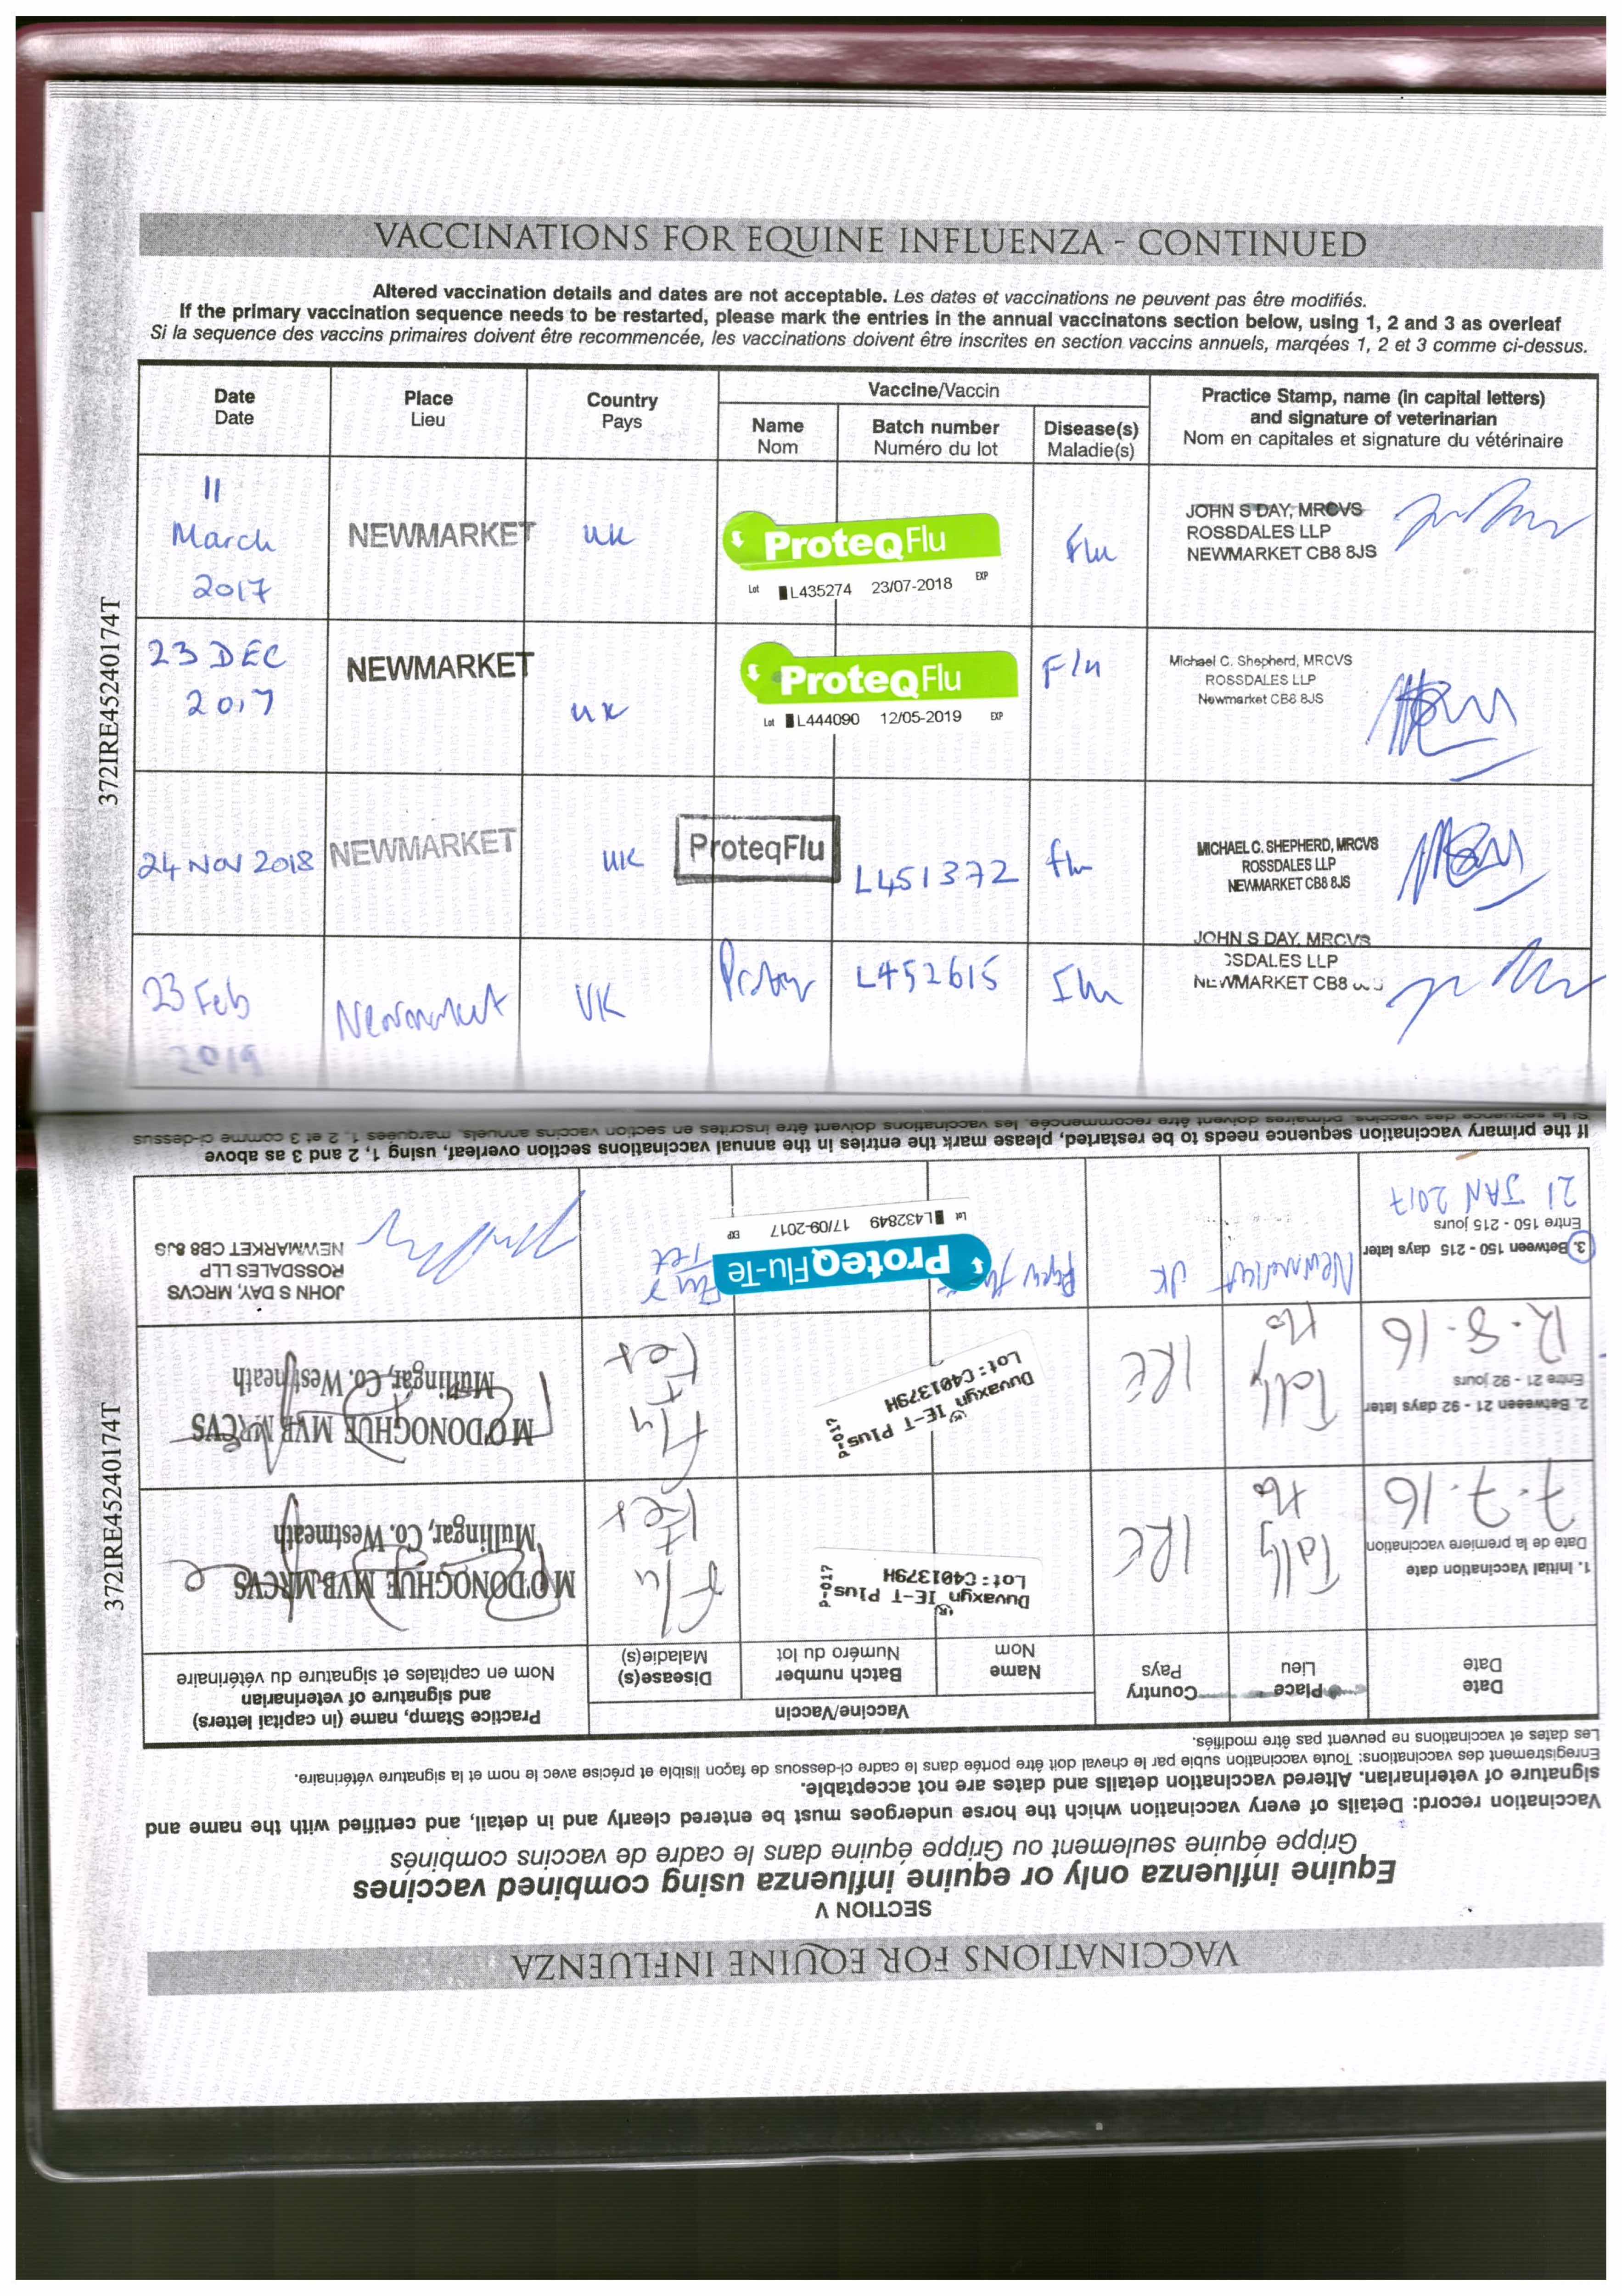 VACCINATIONS FOR EQUINE INFLUENZA - CONTINUED
Altered vaccination details and dates are not acceptable. Les dates et vaccinations ne peuvent pas être modifiés.
If the primary vaccination sequence needs to be restarted, please mark the entries in the annual vaccinatons section below, using 1, 2 and 3 as overleaf
Si la sequence des vaccins primaires doivent être recommencée, les vaccinations doivent être inscrites en section vaccins annuels, marqées 1, 2 et 3 comme ci-dessus.
372IRE45240174T
Date
Date
Place
Lieu
Country
Pays
Vaccine/Vaccin
Name
Nom
Batch number
Numéro du lot
Disease(s)
Maladie(s)
Practice Stamp, name (in capital letters)
and signature of veterinarian
Nom en capitales et signature du vétérinaire
11
March
2017
NEWMARKET
UK
ProteqFlu
Lot L435274 23/07-2018 EXP
Flu
JOHN S DAY, MRCVS
ROSSDALES LLP
NEWMARKET CB8 8JS
23 DEC
2017
NEWMARKET
UK
ProteqFlu
Lot L444090 12/05-2019 EXP
Flu
Michael C. Shepherd, MRCVS
ROSSDALES LLP
Newmarket CB8 8JS
24 NOV 2018
NEWMARKET
UK
ProteqFlu
L451372
flu
MICHAEL C. SHEPHERD, MRCVS
ROSSDALES LLP
NEWMARKET CB8 8JS
23 Feb
2019
Newmarket
UK
L452615
JOHN S DAY, MRCVS
SDALES LLP
NEWMARKET CB8
VACCINATIONS FOR EQUINE INFLUENZA
SECTION V
Equine influenza only or equine influenza using combined vaccines
Grippe équine seulement ou Grippe équine dans le cadre de vaccins combinés
Vaccination record: Details of every vaccination which the horse undergoes must be entered clearly and in detail, and certified with the name and
signature of veterinarian. Altered vaccination details and dates are not acceptable.
Enregistrement des vaccinations: Toute vaccination subie par le cheval doit être portée dans le cadre ci-dessous de façon lisible et précise avec le nom et la signature vétérinaire.
Les dates et vaccinations ne peuvent pas être modifiés.
372IRE45240174T
Date
Date
Place
Lieu
Country
Pays
Vaccine/Vaccin
Name
Nom
Batch number
Numéro du lot
Disease(s)
Maladie(s)
Practice Stamp, name (in capital letters)
and signature of veterinarian
Nom en capitales et signature du vétérinaire
1. Initial Vaccination date
Date de la premiere vaccination
7.7.16
Tally
Ho
IRE
Duvaxyn IE-T Plus
Lot: C401379H
P-017
Flu
Tet
M O'DONOGHUE MVB MRCVS
Mullingar, Co. Westmeath
2. Betweeen 21 - 92 days later
Entre 21 - 92 jours
12.8.16
Tally
Ho
IRE
Duvaxyn IE-T Plus
Lot: C401379H
P-017
Flu
Tet
M O'DONOGHUE MVB MRCVS
Mullingar, Co. Westmeath
3. Between 150 - 215 days later
Entre 150 - 215 jours
21 JAN 2017
Newmarket
UK
ProteqFlu-Te
Lot L432849 17/09-2017 EXP
Flu
Tet
JOHN S DAY, MRCVS
ROSSDALES LLP
NEWMARKET CB8 8JS
If the primary vaccination sequence needs to be restarted, please mark the entries in the annual vaccinations section overleaf, using 1, 2 and 3 as above
Si la sequence des vaccins primaires doivent être recommencée, les vaccinations doivent être inscrites en section vaccins annuels, marquées 1, 2 et 3 comme ci-dessus